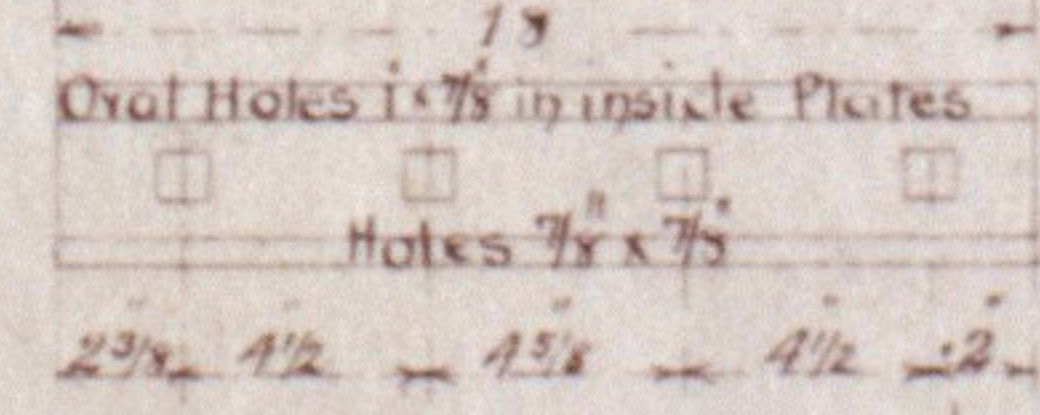 18
Oval Holes 1" x 7/8" in inside Plates
Holes 7/8" x 7/8"
2 3/8" 4 1/2" 4 5/8" 4 1/2" 2"